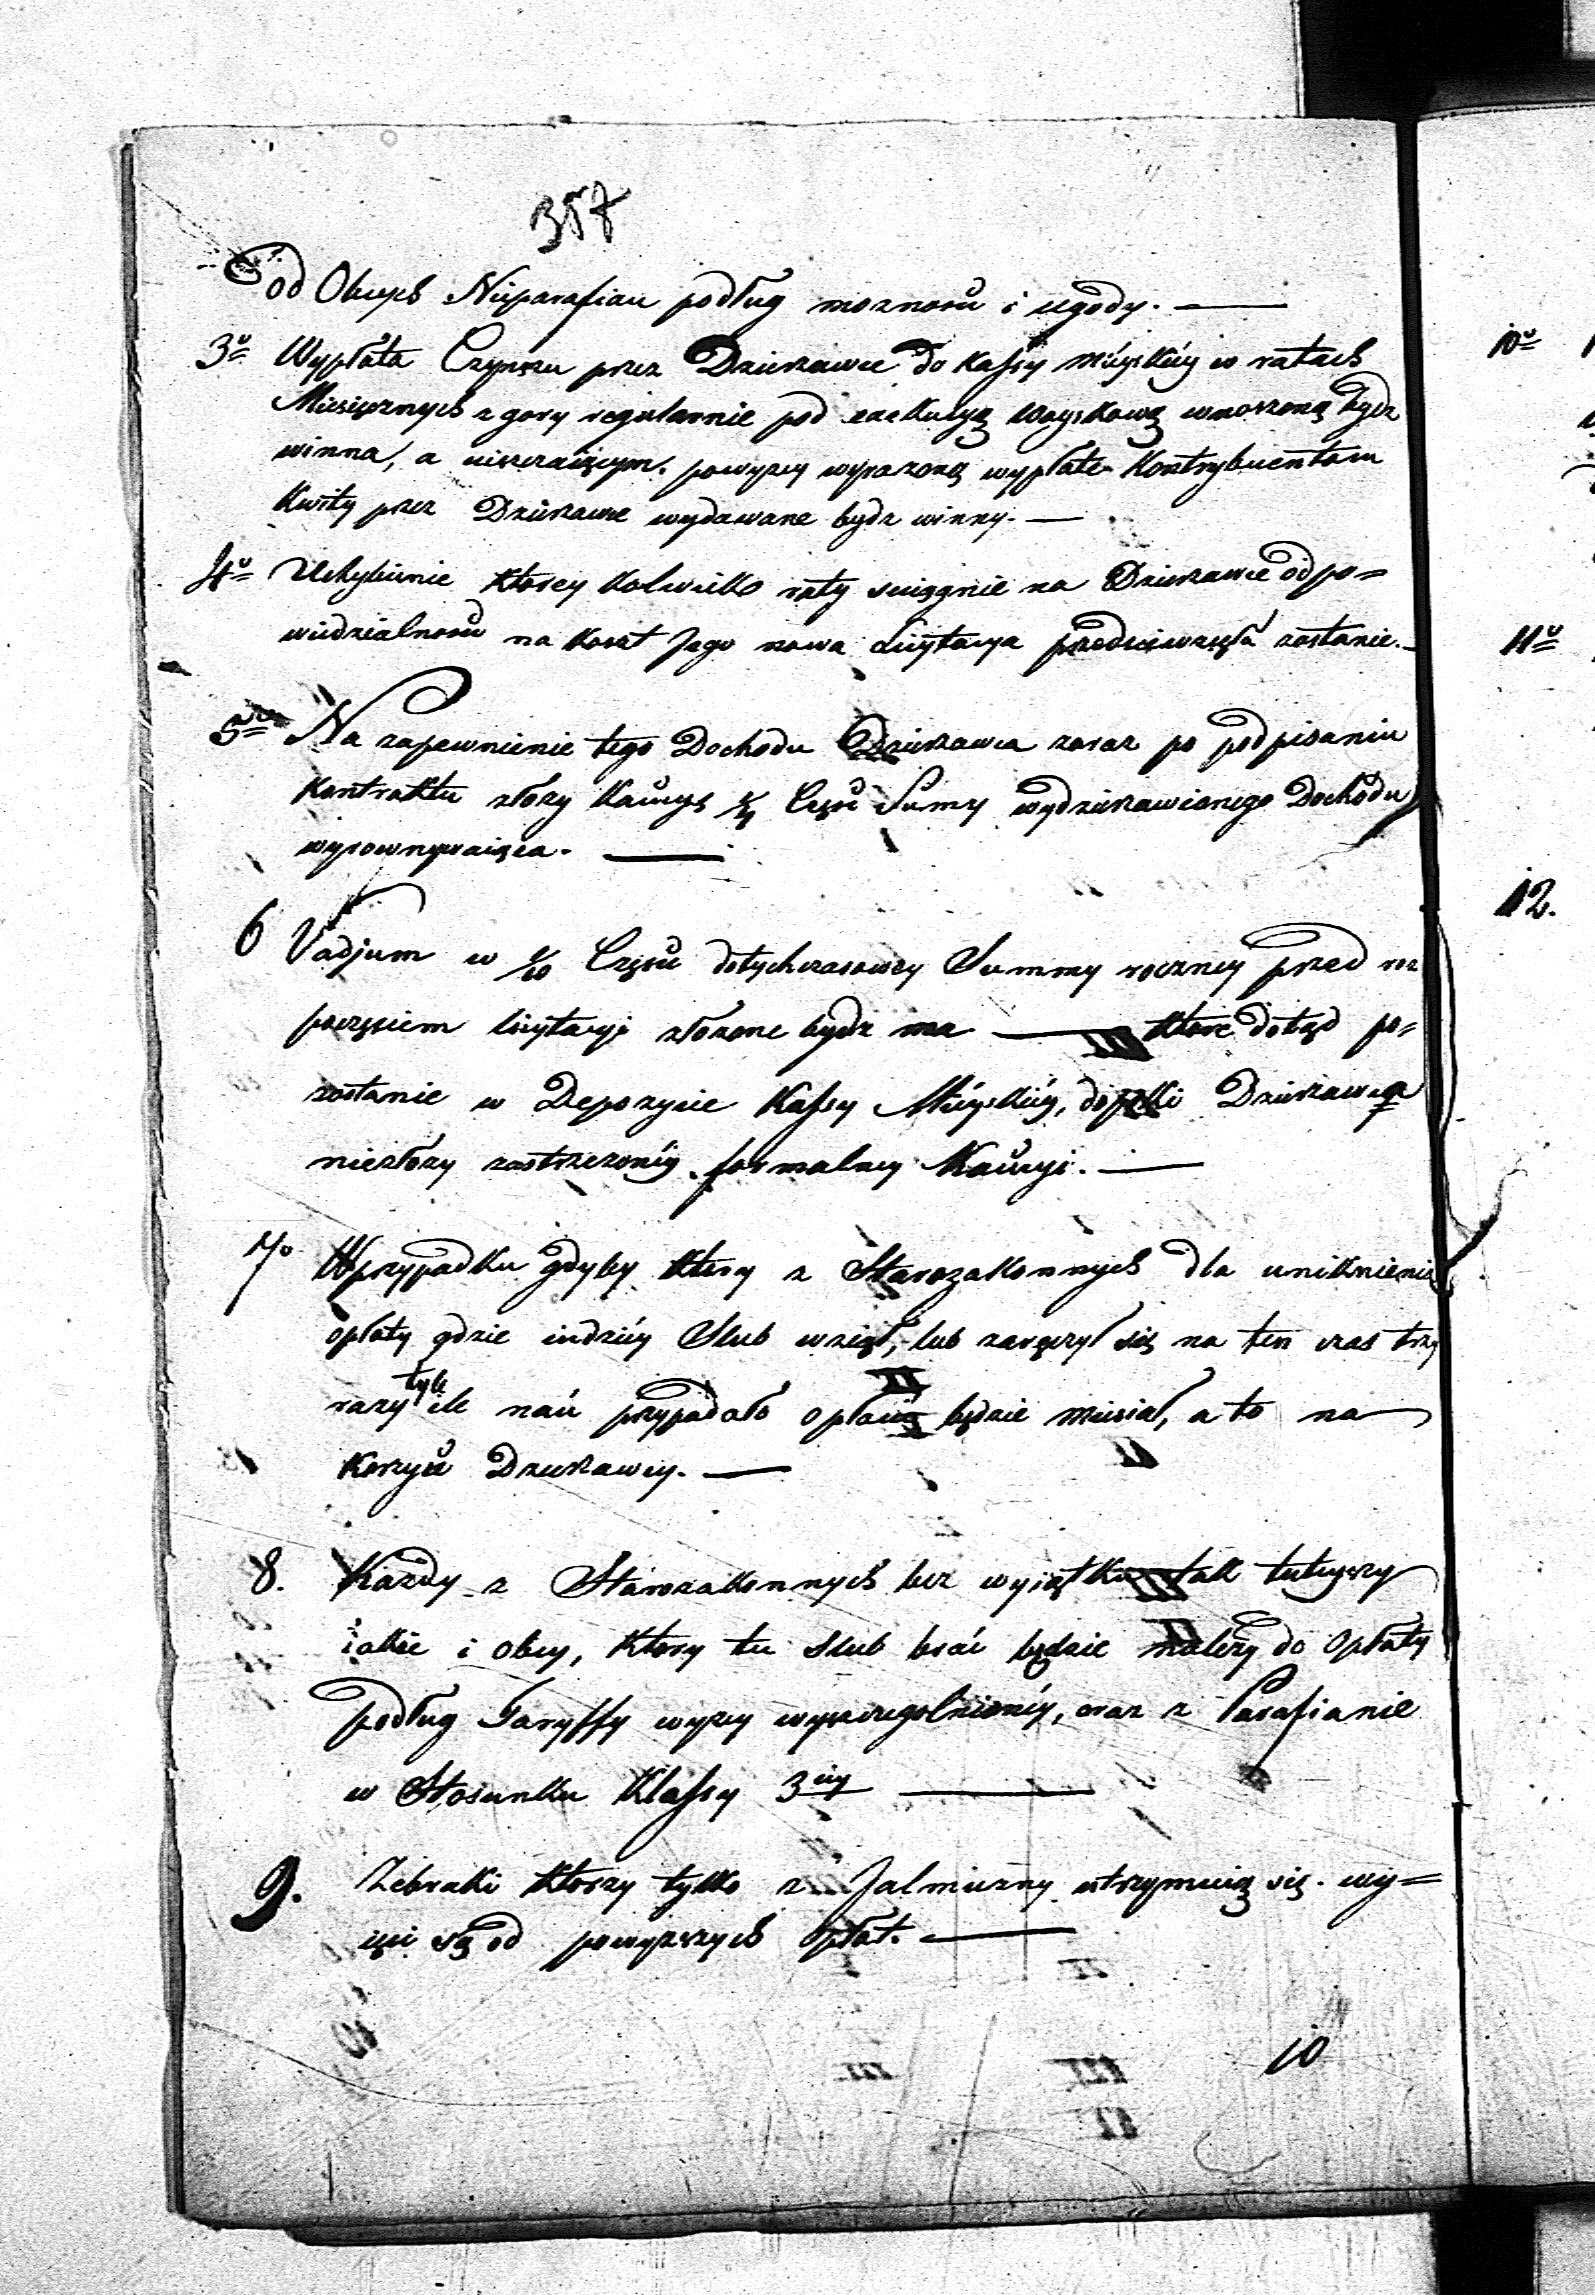 357
od Obcych Nieparafian podług moznosci i ugody. —
3o Wypłata Czynszu przez Dzierzawce do Kassy Mieyskiéy w ratach
Miesięcznych z gory regularnie pod exekucyą Woyskową wnoszoną bydz
winna, a uiszczaiącym powyzey wyrazoną wypłate Kontrybuentom
Kwity przez Dzierzawce wydawane bydz winny. —
4o Uchybienie ktorey kolwiek raty sciągnie na Dzierzawce odpo=
wiedzialnosc na koszt Jego nowa Licytacya przedsięwzięta zostanie. —
5o Na zapewnienie tego Dochodu Dzierzawca zaraz po podpisaniu
Kontraktu złozy Kaucyą ¼ Częsci Sumy wydzierzawionego Dochodu
wyrownywaiąca. —
6 Vadjum w 1/10 Częsci dotychczasowey Summy roczney przed roz
poczęciem licytacyi złozone bydz ma — ktore dotąd po=
zostanie w Depozycie Kassy Mieyskiéy, dopoki Dzierzawca
niezłozy zastrzezonéy formalney Kaucyi. —
7o W przypadku gdyby ktory z Starozakonnych dla uniknienia
opłaty gdzie indziéy Slub wziął, lub zaręczył się na ten czas trzy
razy tyle ile nań przypadało opłacić będzie musiał, a to na
Korzysć Dzierzawcy. —
8. Kazdy z Starozakonnych bez wyiątku tak tuteyszy
iakie i obcy, ktory tu Slub brać będzie nalezy do Opłaty
podług Taryffy wyzey wyszczegolnionéy, oraz z Parafianie
w Stosunku Klassy 3ciey —
9. Zebraki ktorzy tylko z Jalmuzny utrzymuią się wy=
ięci są od powyzszych opłat. —
10
10o
11o
12.